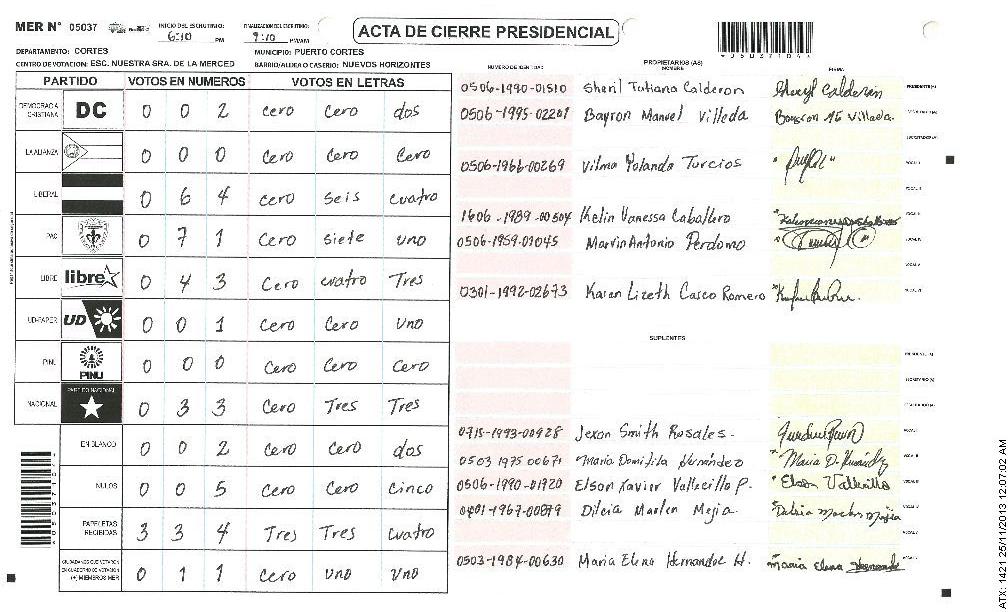 MER N° 05037 INICIO DEL ESCRUTINIO: 6:10 PM FINALIZACION DEL ESCRUTINIO: 9:10 PM/AM ACTA DE CIERRE PRESIDENCIAL
DEPARTAMENTO: CORTES MUNICIPIO: PUERTO CORTES
CENTRO DE VOTACION: ESC. NUESTRA SRA. DE LA MERCED BARRIO/ALDEA O CASERIO: NUEVOS HORIZONTES
PARTIDO VOTOS EN NUMEROS VOTOS EN LETRAS
DEMOCRACIA CRISTIANA DC 0 0 2 cero Cero dos
LA ALIANZA 0 0 0 Cero Cero Cero
LIBERAL 0 6 4 cero seis cuatro
PAC 0 7 1 Cero siete uno
LIBRE libre 0 4 3 Cero cuatro Tres
UD-FAPER UD 0 0 1 Cero Cero uno
PINU PINU 0 0 0 Cero Cero Cero
NACIONAL PARTIDO NACIONAL 0 3 3 Cero Tres Tres
EN BLANCO 0 0 2 Cero Cero dos
NULOS 0 0 5 Cero Cero Cinco
PAPELETAS RECIBIDAS 3 3 4 Tres Tres cuatro
CIUDADANOS QUE VOTARON EN CUADERNO DE VOTACION (+) MIEMBROS MER 0 1 1 cero uno uno
NUMERO DE IDENTIDAD PROPIETARIOS (AS) NOMBRE FIRMA
0506-1990-01510 Sheril Tatiana Calderon Sheryl Calderon
0506-1995-02201 Bayron Manuel Villeda
0506-1966-00269 Vilma Yolanda Turcios
1606-1989-00504 Kelin Vanessa Caballero
0506-1959-01045 Marvin Antonio Perdomo
0301-1992-02673 Karen Lizeth Casco Romero
SUPLENTES
0715-1993-00928 Jexon Smith Rosales.
0503 1975 00671 Maria Domitila Hernández Maria D. Hernández
0506-1990-01920 Elson Xavier Vallecillo P. Elson Vallecillo
0401-1967-00879 Dilcia Marlen Mejia
0503-1984-00630 Maria Elena Hernandez H. Maria Elena Hernandez
ATX: 1421 25/11/2013 12:07:02 AM